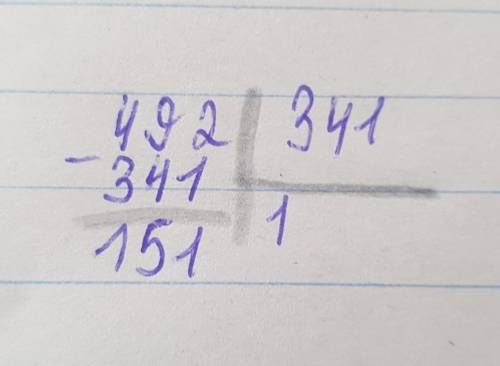 492 341
- 341 1
151